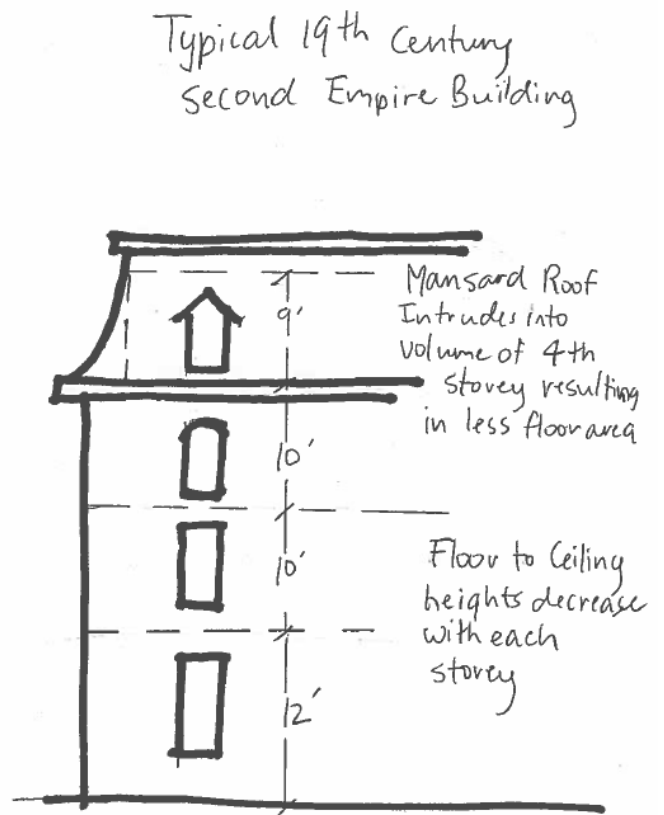 Typical 19th Century
Second Empire Building
Mansard Roof
Intrudes into
volume of 4th
storey resulting
in less floor area
9'
10'
10'
Floor to Ceiling
heights decrease
with each
storey
12'